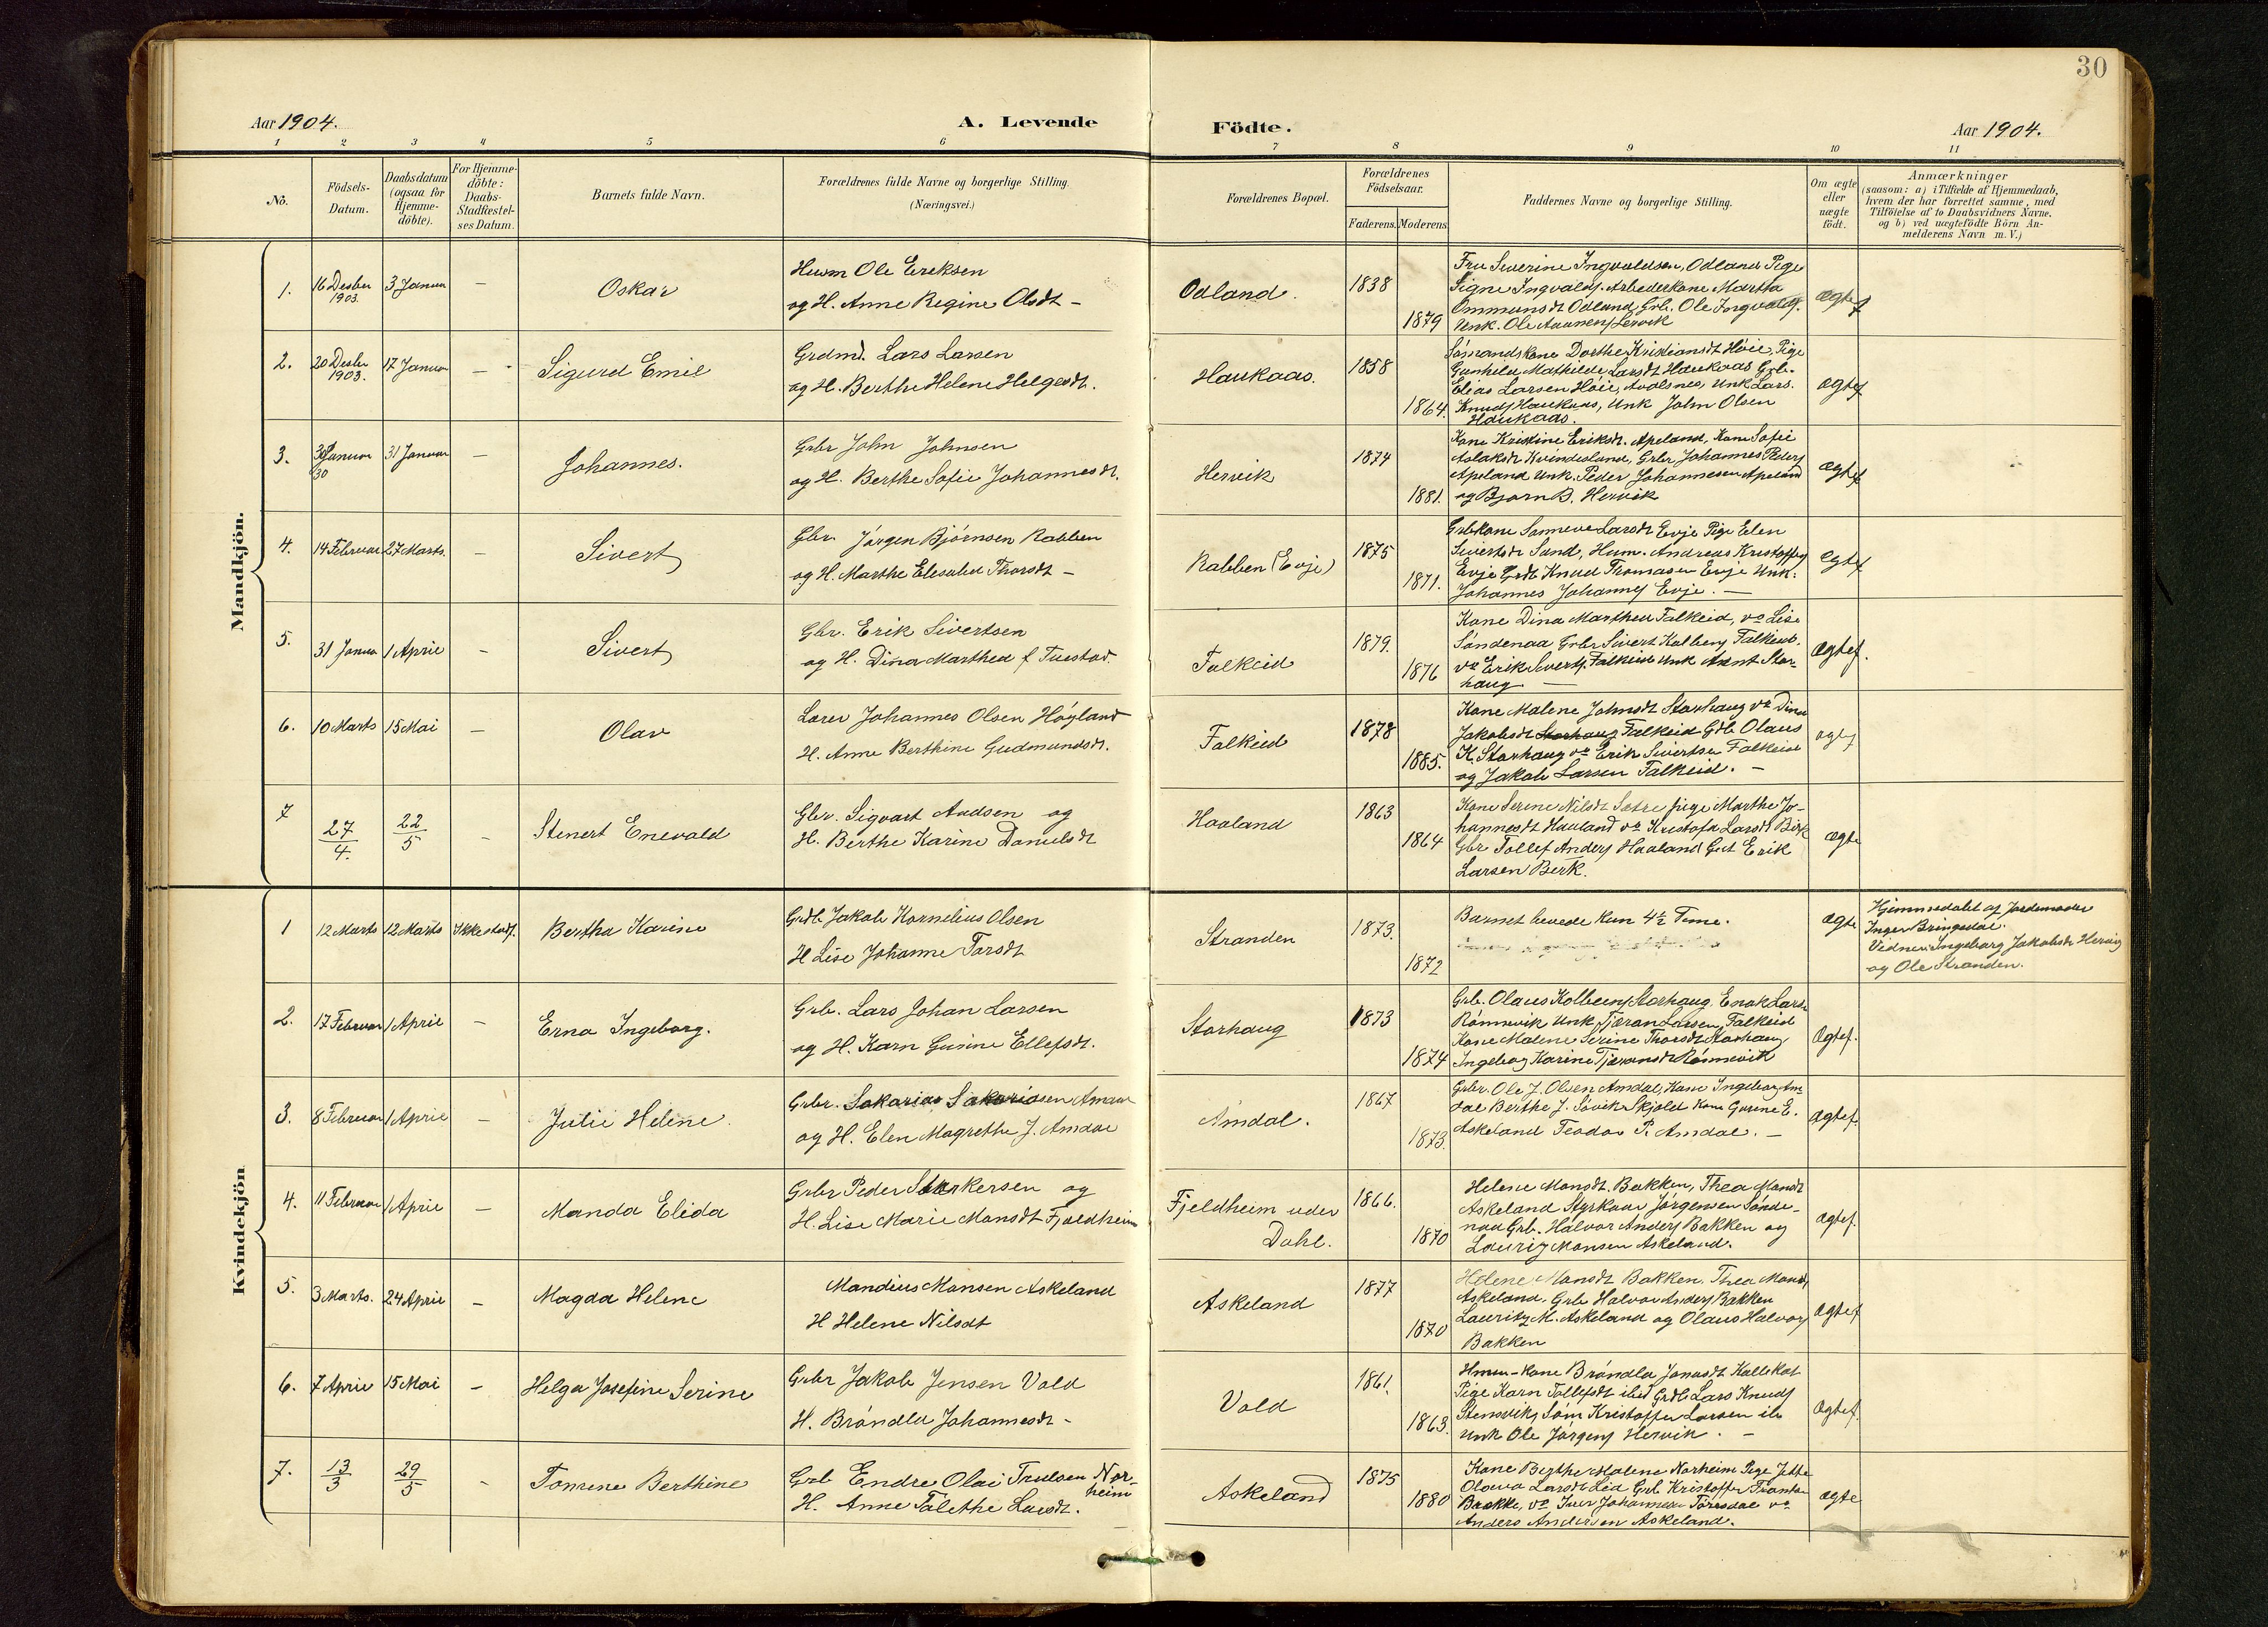 30
Aar 1904.
A. Levende
Födte.
Aar 1904.
1 2 3 4 5 6 7 8 9 10 11
No.
Födsels-
Datum.
Daabsdatum
(ogsaa for
Hjemme-
döbte).
For Hjemme-
döbte:
Daabs-
Stadfæstel-
ses Datum.
Barnets fulde Navn.
Forældrenes fulde Navne og borgerlige Stilling.
(Næringsvei.)
Forældrenes Bopæl.
Forældrenes
Födselsaar.
Faderens. Moderens
Faddernes Navne og borgerlige Stilling.
Om ægte
eller
uægte
födt.
Anmærkninger
(saasom: a) i Tilfælde af Hjemmedaab,
hvem der har forrettet samme, med
Tilföielse af to Daabsvidners Navne.
og b) ved uægtefödte Börn An-
melderens Navn m. V.)
Mandkjön.
1. 16 Desber 1903. 3 Januar - Oskar
Husm Ole Ereksen
og H. Anne Regine Olsdt -
Odland. 1838 1879
Fru Severine Ingvaldsen, Odland Pige
Signe Ingvalds. Arbederkone Martha
Ommundsdt Odland, Grb. Ole Ingvalds.
Unk. Ole Aanensen Lervik
Ægtef
2. 20 Desber 1903. 17 Januar - Sigurd Emil
Grdmd. Lars Larsen
og H. Berthe Helene Helgesdt.
Haukaas. 1858 1864.
Sömandskone Dorthe Kristiansdt Höie, Pige
Gunhild Mathilde Larsdt Haukaas Grb.
Elias Larsen Höie, Avalsnes, Unk Lars
Knuds Haukaas, Unk John Olsen
Haukaas.
Ægtef
3. Januar 30 31 Januar - Johannes.
Grbr John Johnsen
og H. Berthe Sofie Johannesdt.
Hervik 1874 1881.
Kone Kristine Eriksdt. Apeland, Kone Sofie
Aslaksdt Kvindesland, Grbr Johannes Peders
Apeland Unk. Peder Johannesen Apeland
og Bjørn B. Hervik
Ægtef
4. 14 Februar 27 Marts. - Sivert
Gbr. Jörgen Björnsen Rabben
og H. Marthe Elesabet Thorsdt -
Rabben (Evje) 1875 1871.
Grbkone Sanneve Larsdt Evje Pige Elen
Sivertsdt Sund, Husm. Andreas Kristoffers
Evje Grdb Knud Thomasen Evje Unk.
Johannes Johannes Evje. -
Ægtef
5. 31 Januar 1 April - Sivert
Gbr. Erik Sivertsen
og H. Dina Marthea f Tuestad.
Falkeid 1879. 1876
Kone Dina Marthea Falkeid, do Lise
Søndenaa Grbr Sivert Kolbens Falkeid.
do Erik Siverts. Falkeid Unk Arent Stor-
haug -
Ægtef.
6. 10 Marts 15 Mai - Olav
Lærer Johannes Olsen Höyland
H. Anne Berthine Gudmundsdt.
Falkeid 1878 1885.
Kone Malene Johnsdt Storhaug do Dina
Jakobsdt Storhaug Falkeid Gdb Olaus
K. Storhaug do Erik Sivertsen Falkeid
og Jakob Larsen Falkeid. -
7 27/4. 22/5 - Stenert Enevald
Gbr. Sigvart Aadsen og
H. Berthe Karine Danielsdt
Haaland 1863 1864
Kone Serine Nilsdt Sætre pige Marthe Jo-
hannesdt Haaland do Kristofa Larsdt Birk
Gbr Tollef Anders Haaland Gut Erik
Larsen Berk.
Ægte
Kvindekjön
1 12 Marts 12 Marts Ikke stadf. Bertha Karine
Grdb Jakob Kornelius Olsen
H Lise Johanne Torsdt
Stranden 1873. 1872
Barnet levede kun 4½ Time.
Ægte
Hjemmedöbt af Jordemoder
Inger Bringedal.
Vidner: Ingeborg Jakobsdt Hervig
og Ole Stranden.
2. 17 Februar 1 April - Erna Ingeborg.
Grb. Lars Johan Larsen
og H. Karn Gurine Ellefsdt.
Storhaug 1873 1874
Grb. Olaus Kolbens Storhaug, Enok Lars.
Rönnevik Unk Tjæran Larsen, Falkeid
Kone Malene Serine Thorsdt Storhaug
Ingeborg Karine Tjæransdt Rönnevik
Ægtef.
3. 8 Februar 1 April - Julie Helene.
Grbr. Sakarias Sakariasen Amdal
og H. Elen Magrethe J. Amdal
Amdal. 1867 1873.
Grbr. Ole J. Olsen Amdal, Kone Ingeborg Am-
dal Berthe J. Søvik Skjold Kone Gurine E.
Askeland Teodor P. Amdal. -
Ægtef.
4. 11 Februar 1 April - Manda Elida
Grbr Peder Styrkersen og
H. Lise Marie Monsdt Fjeldheim
Fjeldheim under
Dahl. 1866. 1870
Helene Monsdt. Bakken, Thea Monsdt
Askeland Styrkaar Jørgensen Sønde-
naa Grb. Halvor Anders Bakken og
Lauritz Monsen Askeland.
Ægtef.
5. 3 Marts. 24 April - Magda Helene
Mandius Monsen Askeland
H Helene Nilsdt
Askeland 1877 1870
Helene Monsdt Bakken, Thea Monsdt
Askeland. Grb Halvor Anders Bakken
Lauritz M. Askeland og Olaus Halvors
Bakken
Ægtef
6. 7 April 15 Mai - Helga Josefine Serine
Grbr Jakob Jensen Vold
H. Bröndla Johannesdt -
Vold 1861. 1863.
Husm-Kone Bröndla Jonasdt Kallekot
Pige Karn Tollefsdt ibid Grdb Lars Knuds
Stensvik, Söm Kristoffer Larsen ib
Unk Ole Jörgens Hervik. -
Ægtef.
7. 13/3 29/5 - Tomine Berthine
Grb Endre Olai Trulsen Nor-
heim
H. Anne Talethe Larsdt.
Askeland 1875 1880
Kone Berthe Malene Norheim Pige Jette
Olava Larsdt Lid Grb Kristoffer
Brekke, do Iver Johannesen do
Anders Andersen Askeland.
Ægte